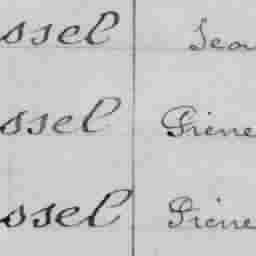 ssel Jea
ssel Pierre
ossel Pierre